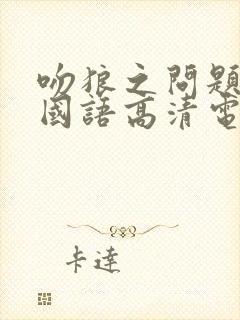 吻狼之問題
國語高清電
卡達